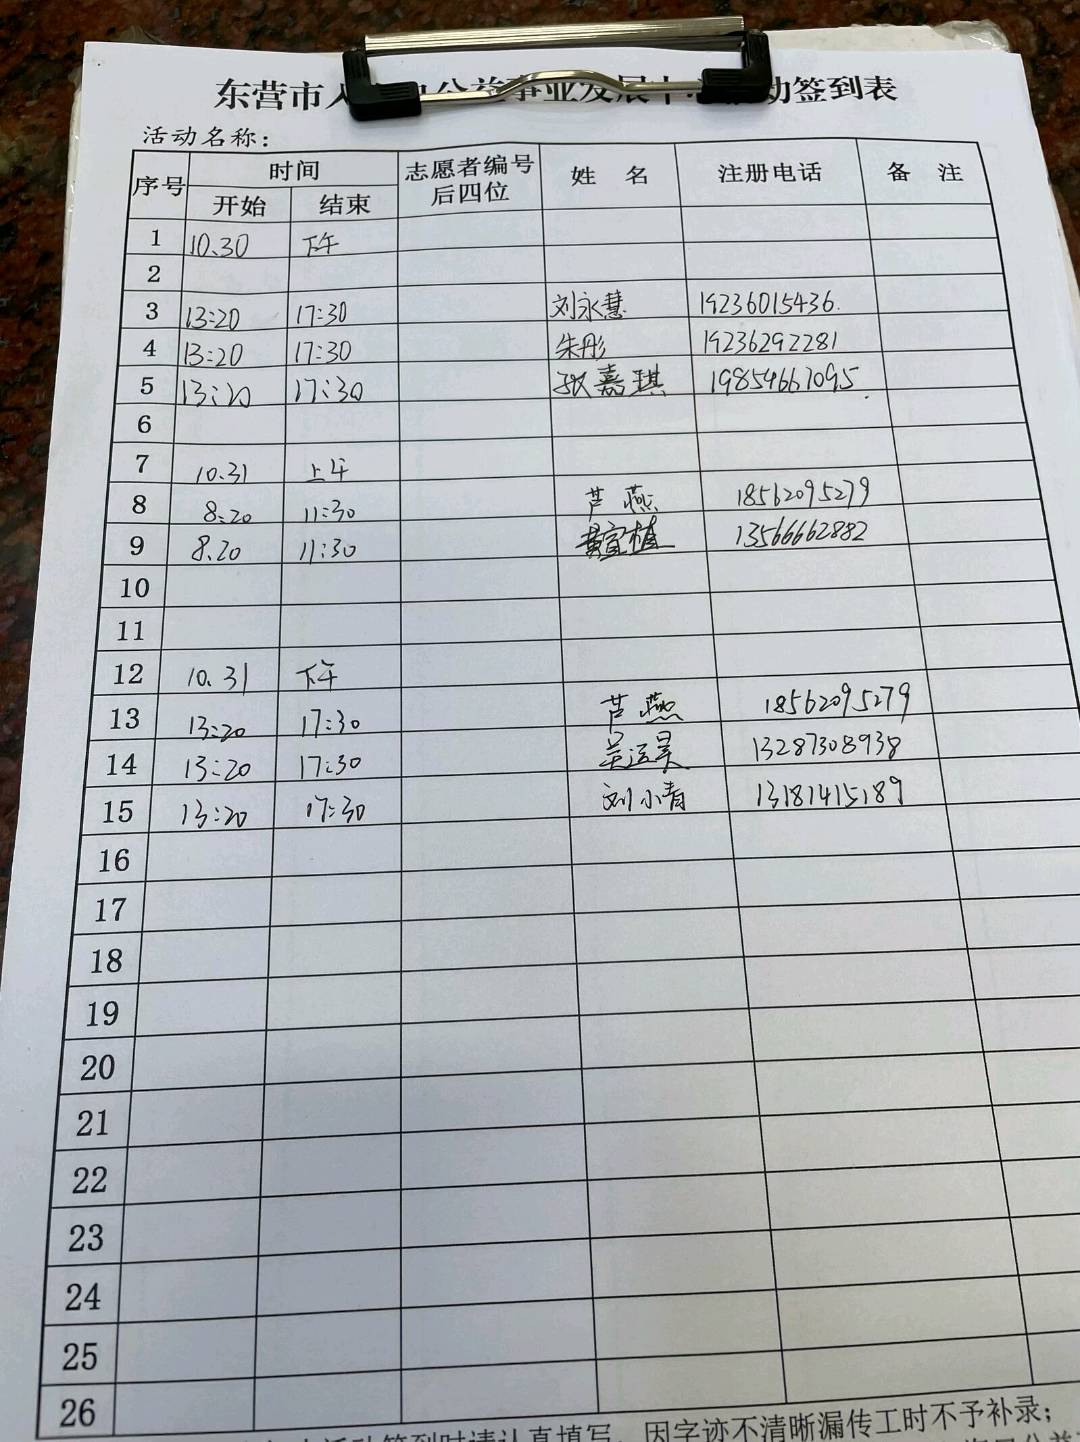 东营市人 公益事业发展中 动签到表
活动名称：
序号 时间 志愿者编号后四位 姓 名 注册电话 备 注
开始 结束
1 10.30 下午
2
3 13:20 17:30 刘永慧 19236015436.
4 13:20 17:30 朱彤 19236292281
5 13:20 17:30 张嘉琪 19854667095
6
7 10.31 上午
8 8:20 11:30 芦燕 18562095279
9 8.20 11:30 13566662882
10
11
12 10.31 下午
13 13:20 17:30 芦燕 18562095279
14 13:20 17:30 吴运昊 13287308938
15 13:20 17:30 刘小青 13181415189
16
17
18
19
20
21
22
23
24
25
26
活动签到时请认真填写，因字迹不清晰漏传工时不予补录；